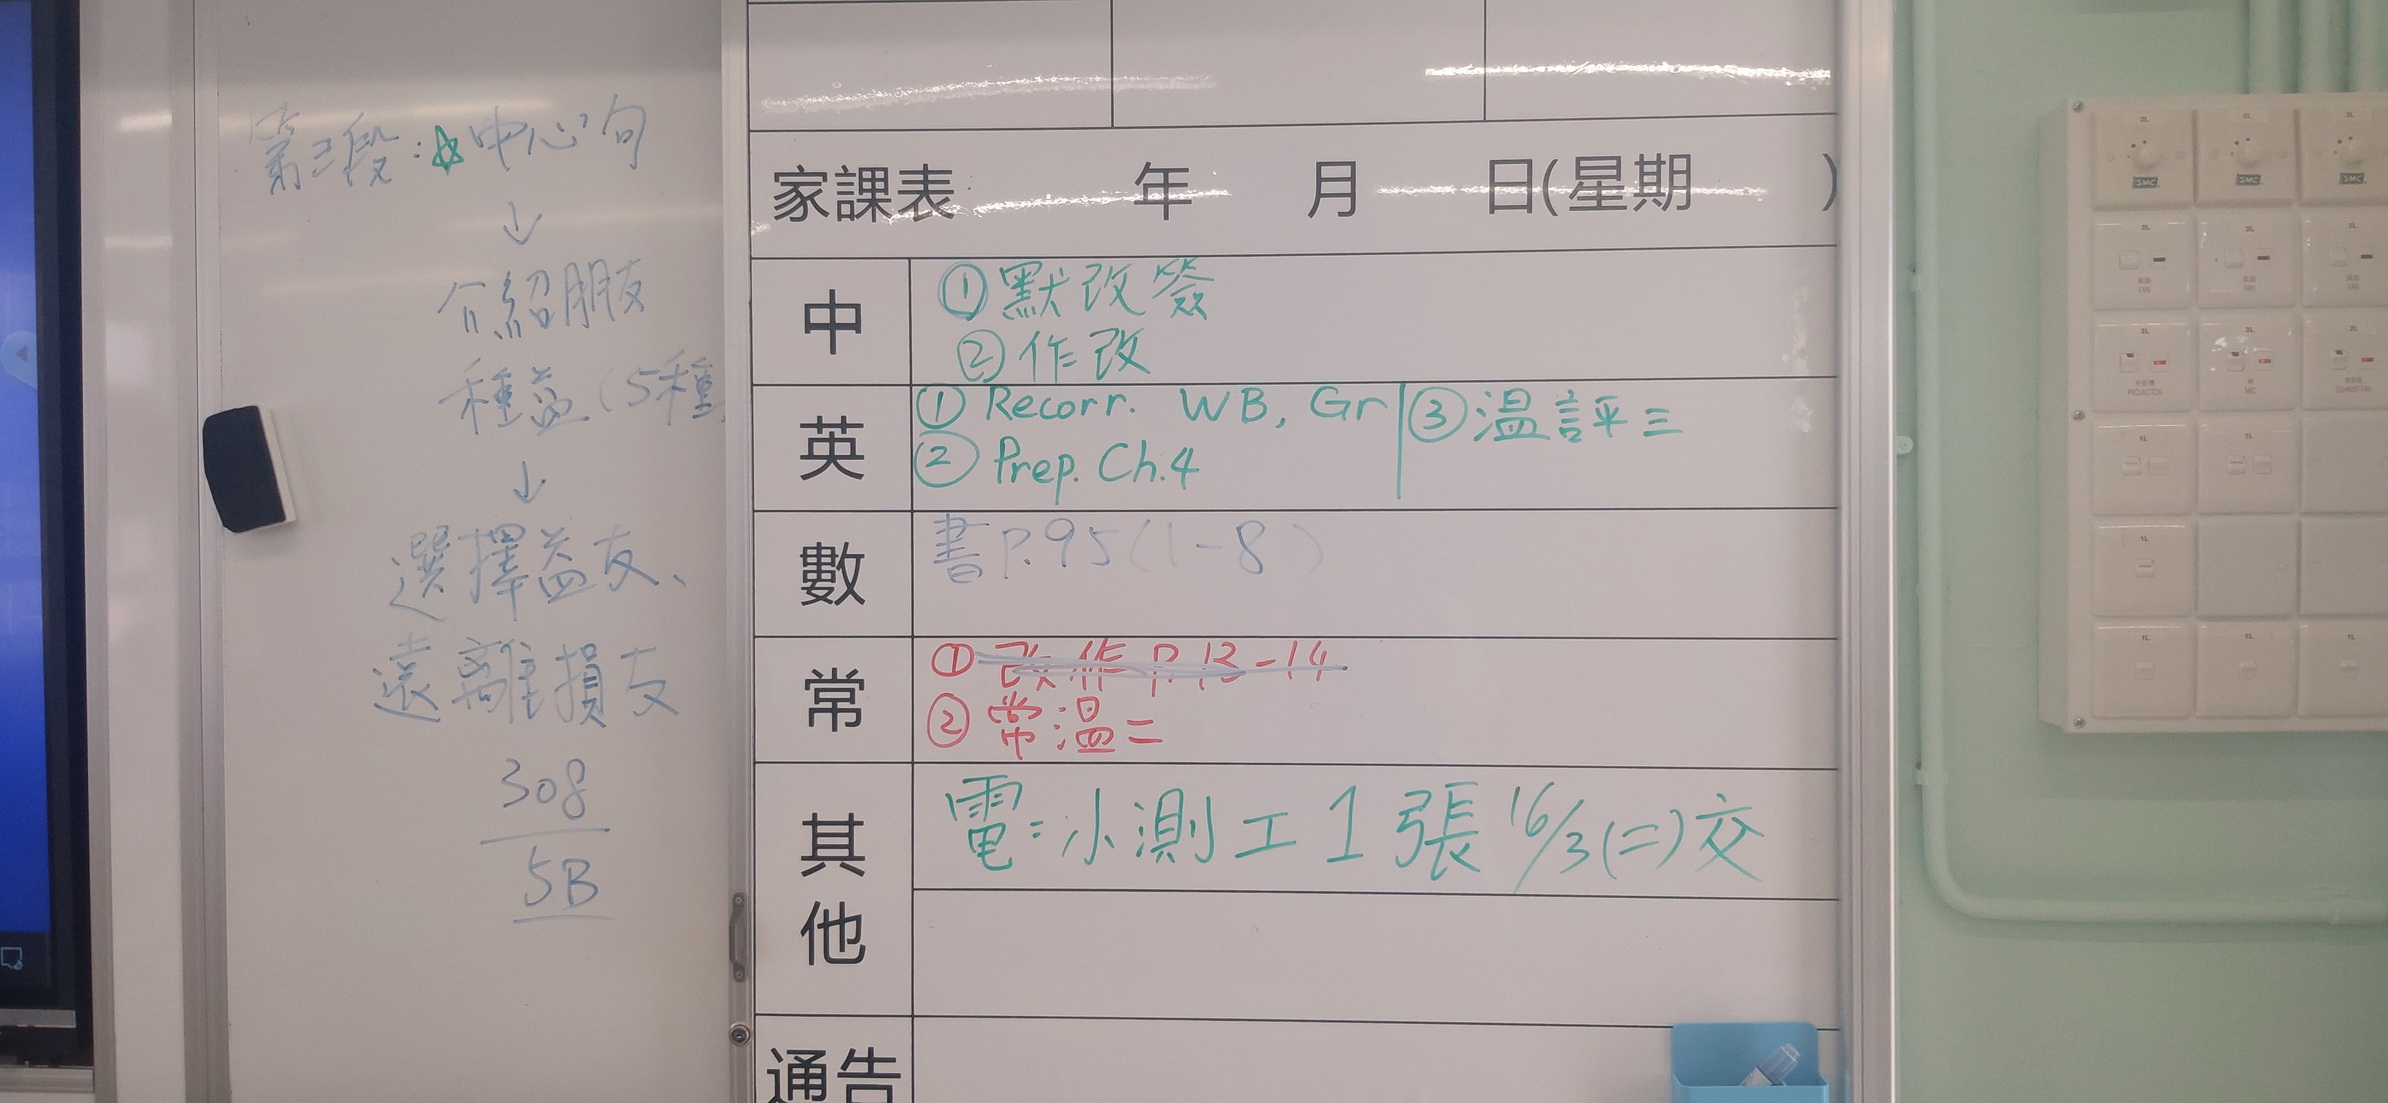 第三段：☆中心句
↓
介紹朋友
種益(5種
↓
選擇益友、
遠離損友
308
5B
家課表 年 月 日(星期 )
中
①默改簽
②作改
英
① Recorr. WB, Gr
② Prep. Ch.4
③溫評三
數
書P.95(1-8)
常
① 改作 P.13-14
② 常溫二
其他
電：小測工1張 16/3(二)交
通告